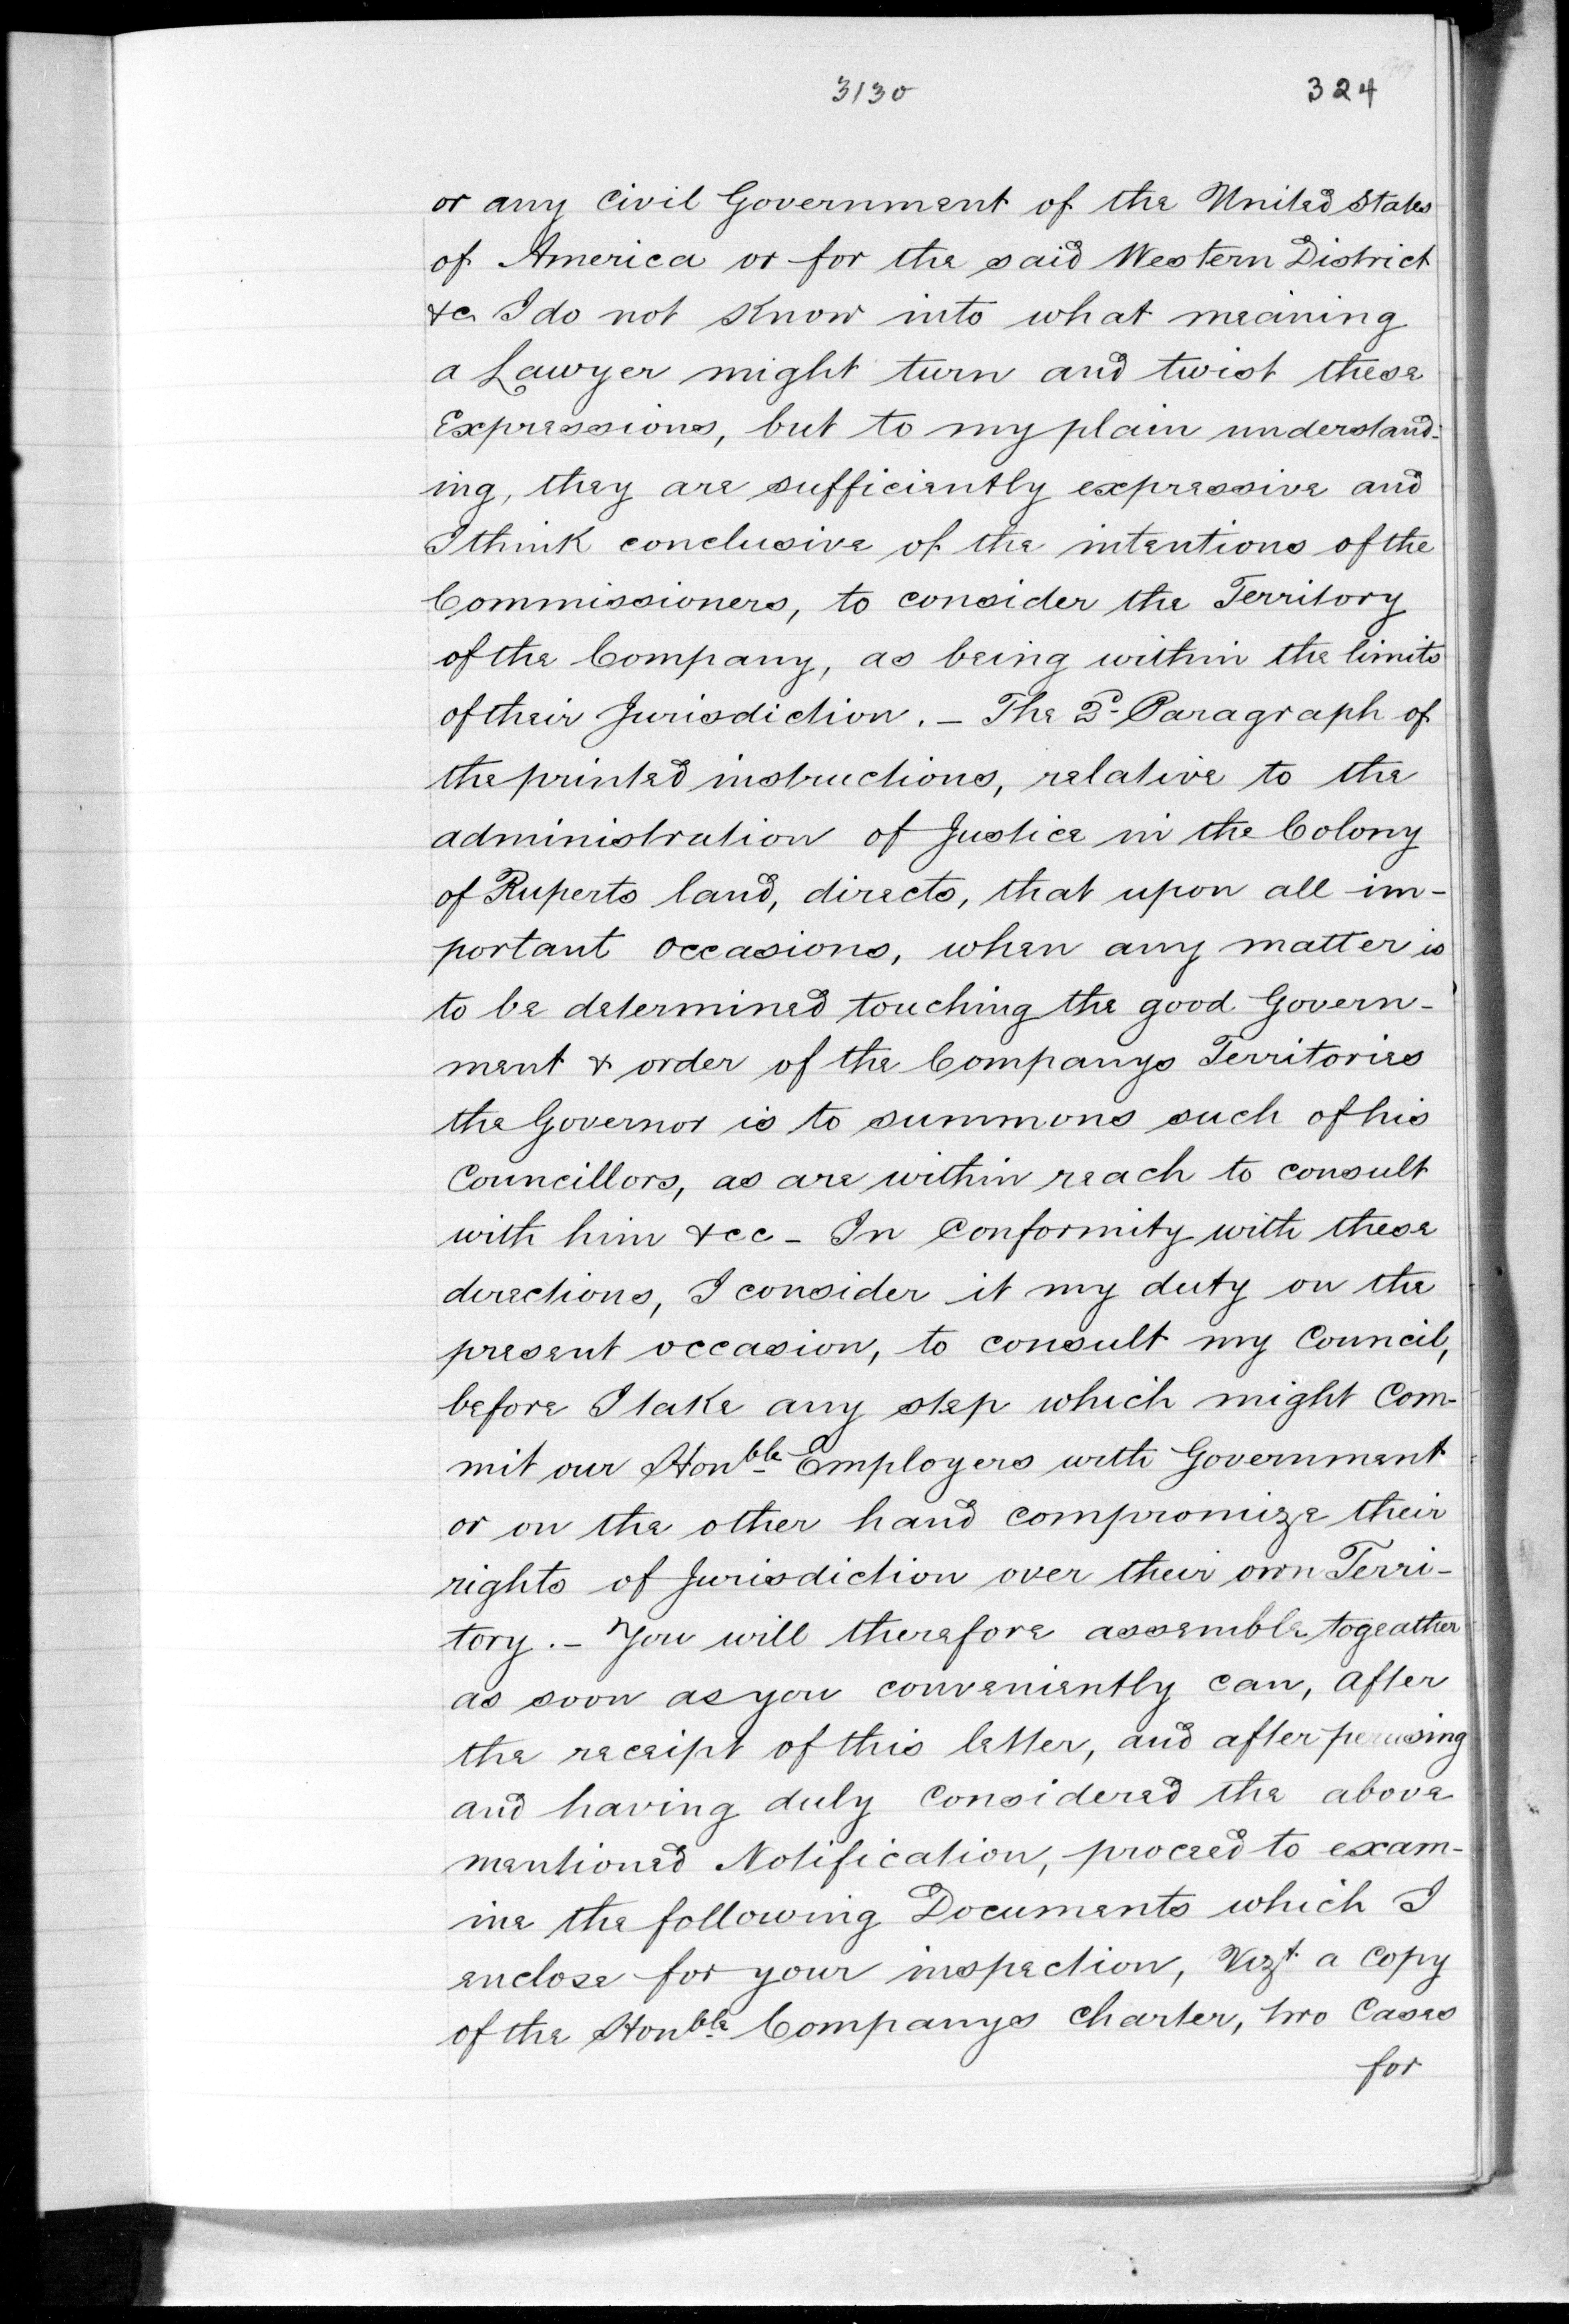 3130 324
or any Civil Government of the United States
of America or for the said Western District
&c I do not know into what meaning
a Lawyer might turn and twist these
Expressions, but to my plain understand-
ing, they are sufficiently expressive and
I think conclusive of the intentions of the
Commissioners, to consider the Territory
of the Company, as being within the limits
of their Jurisdiction. – The 2d Paragraph of
the printed instructions, relative to the
administration of Justice in the Colony
of Ruperts land, directs, that upon all im-
portant occasions, when any matter is
to be determined touching the good Govern-
ment & order of the Companys Territories
the Governor is to summons such of his
Councillors, as are within reach to consult
with him &cc – In Conformity with these
directions, I consider it my duty on the
present occasion, to consult my Council,
before I take any step which might Com-
mit our Honble Employers with Government
or on the other hand compromize their
rights of Jurisdiction over their own Terri-
tory. – You will therefore assemble togeather
as soon as you conveniently can, after
the receipt of this letter, and after perusing
and having duly Considered the above
mentioned Notification, proceed to exam-
ine the following Documents which I
enclose for your inspection, Vizt a Copy
of the Honble Companys Charter, two Cases
for